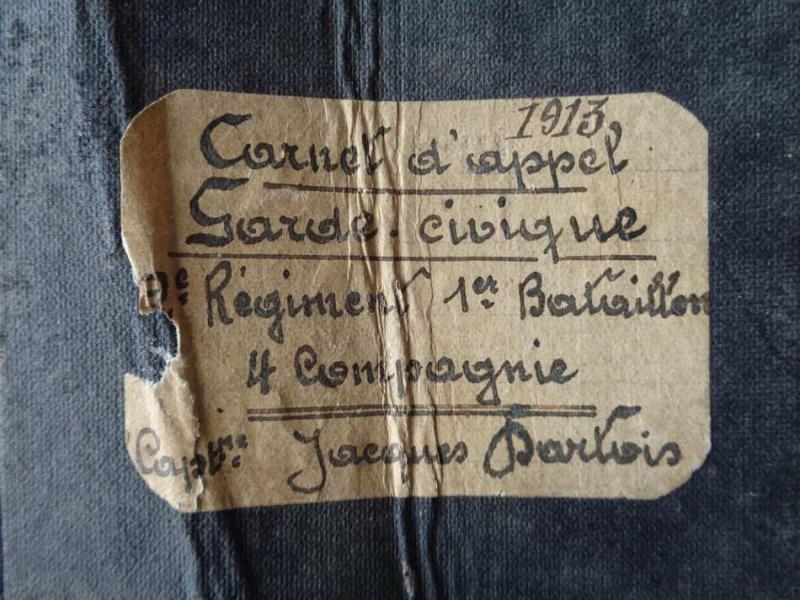 1913
Carnet d'appel
Garde-civique
2e Régiment 1er Bataillon
4 Compagnie
Jacques Dartois